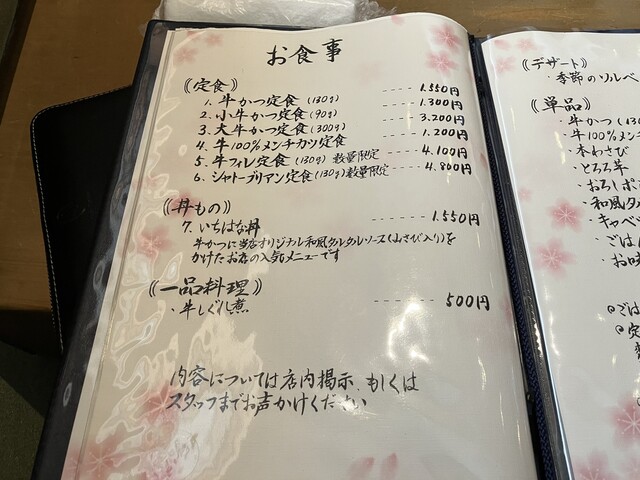 お食事
《定食》
1. 牛かつ定食(130g) ---- 1.550円
2. 小牛かつ定食(90g) ---- 1.300円
3. 大牛かつ定食(300g) ---- 3.200円
4. 牛100%メンチカツ定食 ---- 1.200円
5. 牛フィレ定食(130g)数量限定 ---- 4.100円
6. シャトーブリアン定食(130g)数量限定 ---- 4.800円
《丼もの》
7. いちはな丼 ---- 1.550円
牛かつに当店オリジナル和風タルタルソース(山さび入り)を
かけたお店の人気メニューです
《一品料理》
・牛しぐれ煮 ---- 500円
内容については店内掲示、もしくは
スタッフまでお声かけください
《デザート》
・季節のソルベ
《単品》
・牛かつ(130
・牛100%メンチ
・本わさび
・とろろ芋
・おろしポ
・和風タル
・キャベツ
・ごはん
・お味
◎ごは
◎定